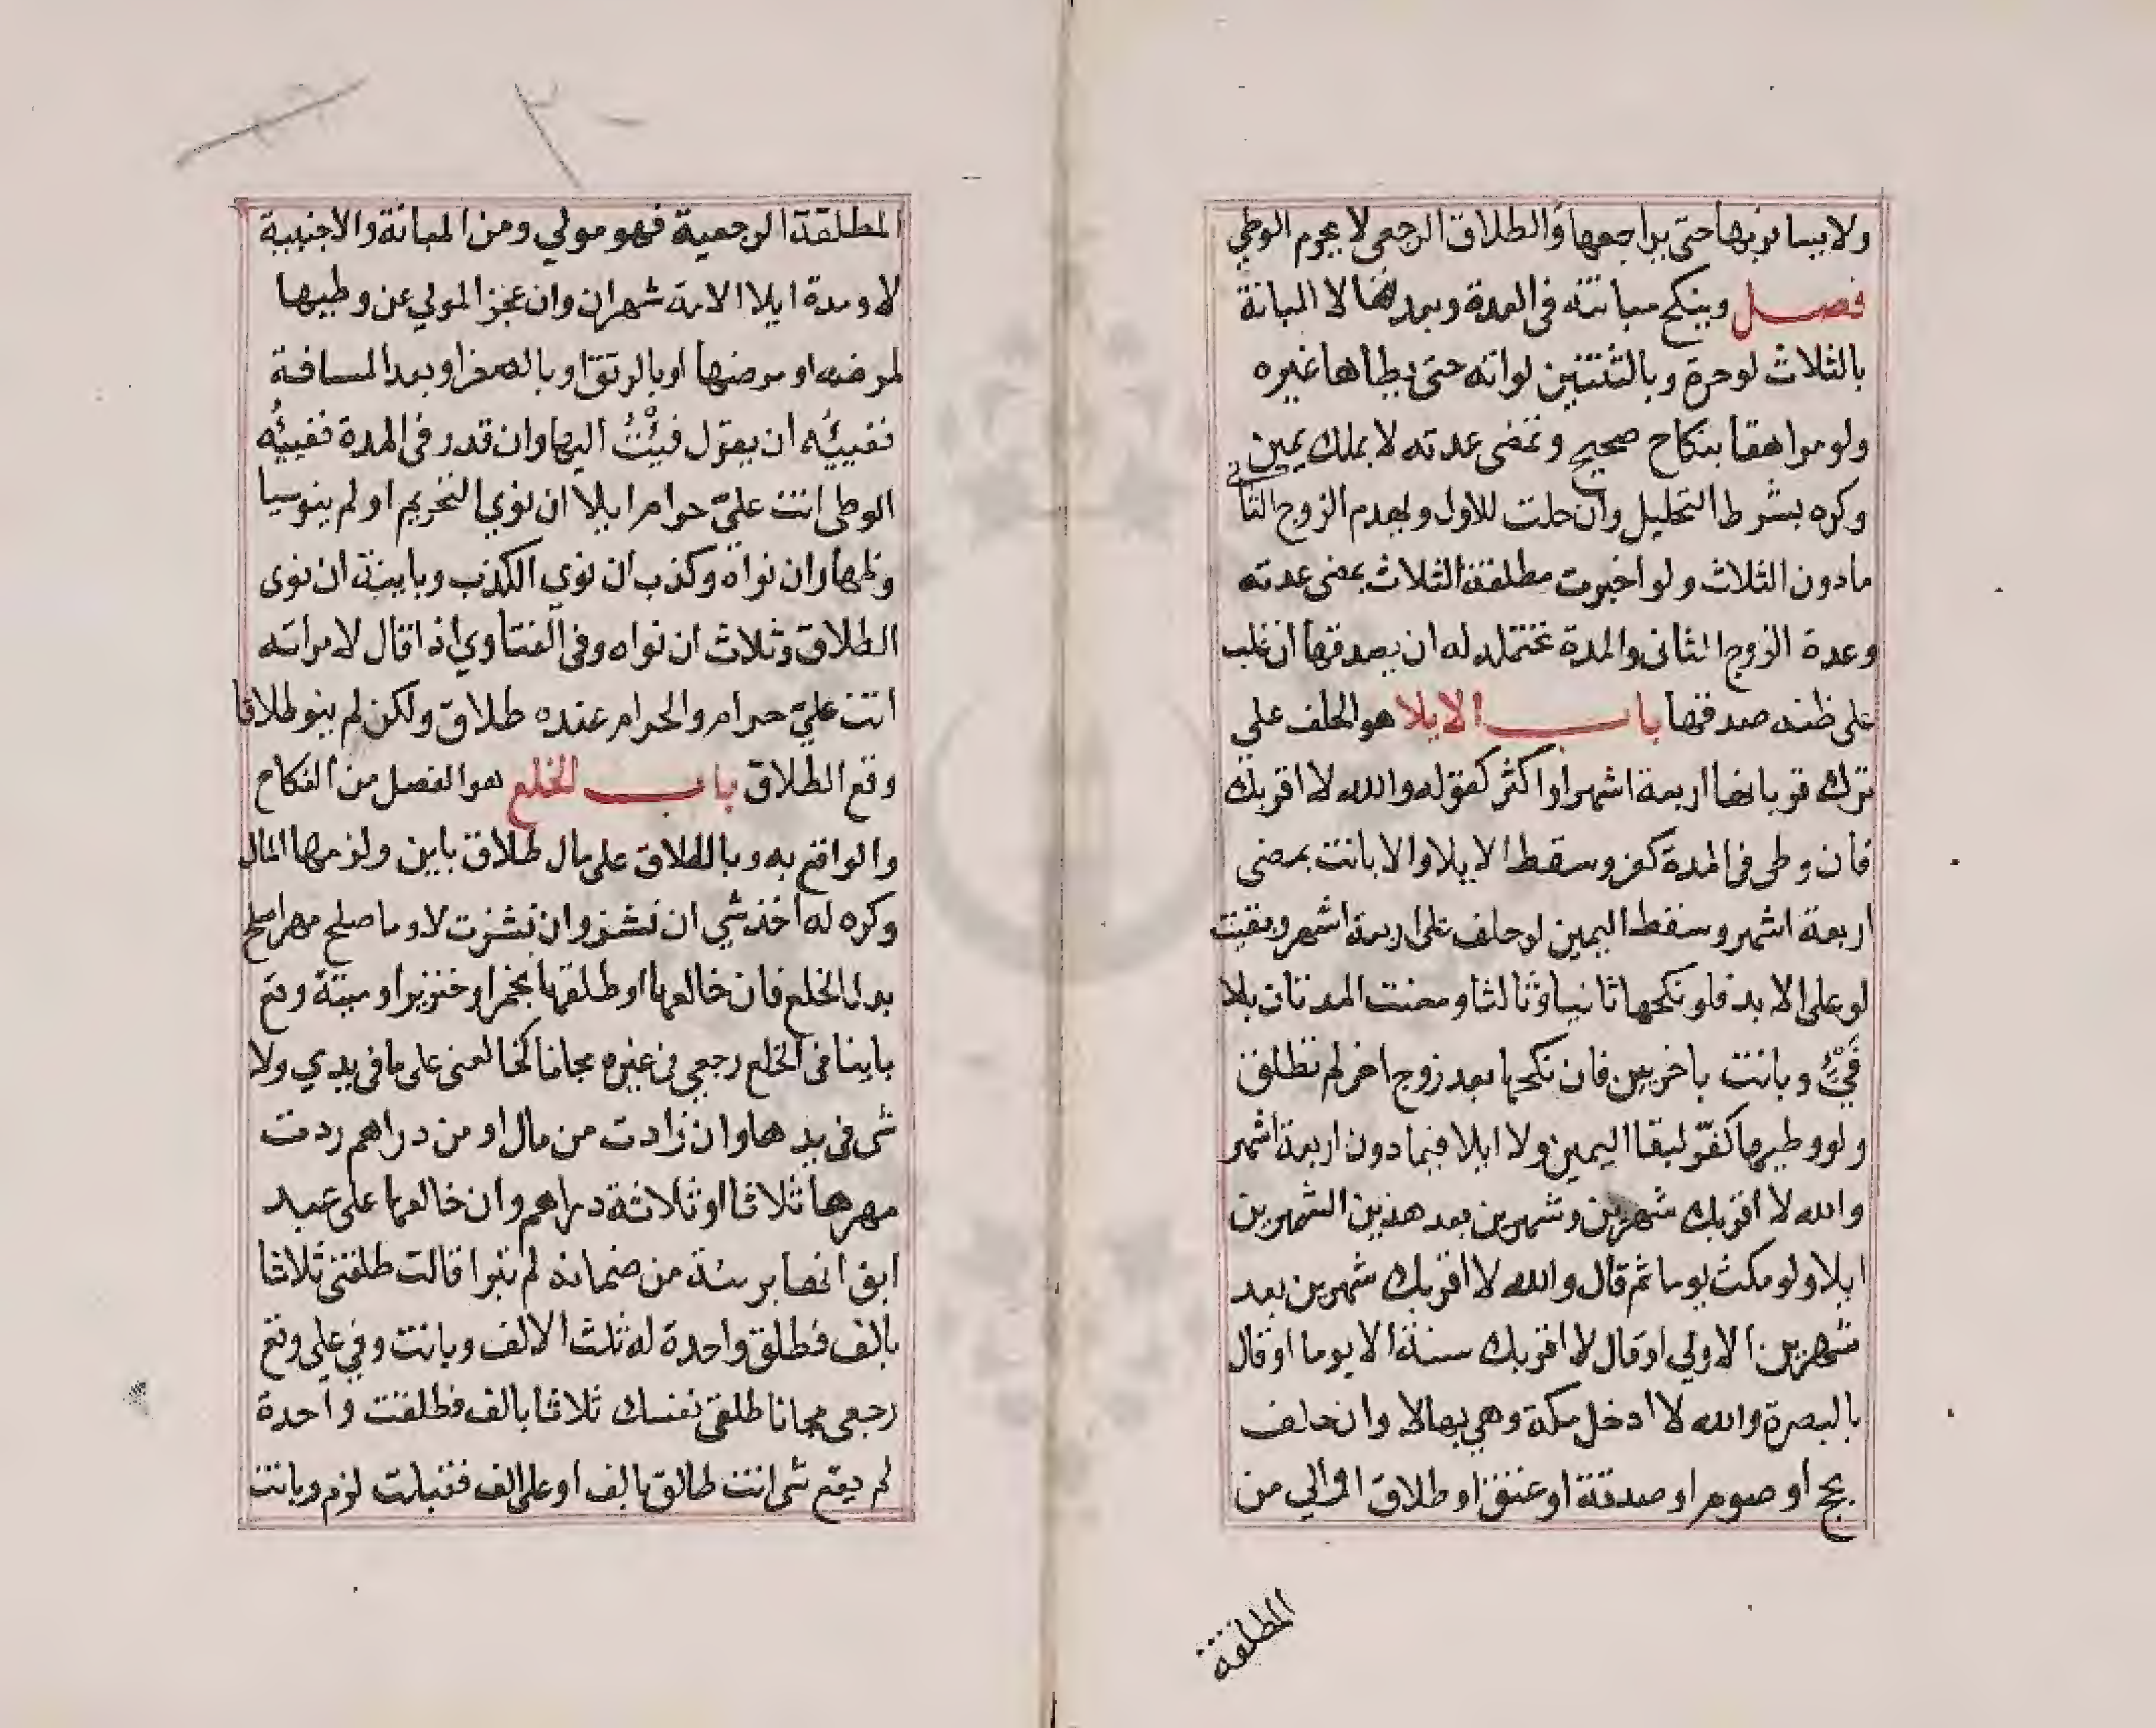 ولا يسافر بها حتى يراجعها والطلاق الرجعي لا يحرم الوطي
فصل وينكح مبانته في العدة وبعدها لا المبانة
بالثلاث لو حرة وبالثنتين لو امة حتى يطاها غيره
ولو مراهقا بنكاح صحيح وتمضى عدته لا بملك يمين
وكره بشرط التحليل وان حلت للاول ويهدم الزوج الثاني
مادون الثلاث ولو اخبرت مطلقة الثلاث بمضى عدته
وعدة الزوج الثانى والمدة تحتمله له ان يصدقها ان غلب
على ظنه صدقها باب الايلا هو الحلف علي
ترك قربانها اربعة اشهر او اكثر كقوله والله لا اقربك
فان وطى فى المدة كفر وسقط الايلا والا بانت بمضى
اربعة اشهر وسقط اليمين لو حلف على اربعة اشهر وبقيت
لو على الابد فلو نكحها ثانيا وثالثا ومضت المدتان بلا
فَيْءٍ وبانت باخريين فان نكحها بعد زوج اخر لم تطلق
ولو وطيها كفّر لبقا اليمين ولا ايلا فيما دون اربعة اشهر
والله لا اقربك شهرين وشهرين بعد هذين الشهرين
ايلا ولو مكث يوما ثم قال والله لا اقربك شهرين بعد
شهرين الاولي او قال لا اقربك سنة الا يوما او قال
بالبصرة والله لا ادخل مكة وهي بها لا وان حلف
بحج او صوم او صدقة او عتق او طلاق او الي من
المطلقة
المطلقة الرجعية فهو مولي ومن المبانة والاجنبية
لا ومدة ايلا الامة شهران وان عجز المولي عن وطيها
لمرضه او مرضها او بالرتق او بالصغر او بعد المسافة
ففييُه ان يقول فِيْتُ اليها وان قدر فى المدة ففييُه
الوطى انت عليّ حرام ايلا ان نوي التحريم او لم ينو شيا
وظهار ان نواه وكذب ان نوي الكذب وباينة ان نوى
الطلاق وثلاث ان نواه وفى الفتاوي اذا قال لامراته
انت عليّ حرام والحرام عنده طلاق ولكن لم ينو طلاقا
وقع الطلاق باب الخلع هو الفصل من النكاح
والواقع به وبالطلاق على مال طلاق باين ولزمها المال
وكره له اخذ شي ان نشز وان نشزت لا وما صلح مهرا صلح
بدل الخلع فان خالعها او طلقها بخمر او خنزير او ميتة وقع
باينا فى الخلع رجعي فى غيره مجانا كخالعنى على ما فى يدي ولا
شى فى يدها وان زادت من مال او من دراهم ردت
مهرها ثلاثا او ثلاثة دراهم وان خالعها على عبد
ابق انها بريئة من ضمانه لم تبرا قالت طلقنى ثلاثا
بالف فطلق واحدة له ثلث الالف وبانت وفي علي وقع
رجعى مجانا طلقى نفسك ثلاثا بالف فطلقت واحدة
لم يقع شى انت طالق بالف او على الف فقبلت لزم وبانت